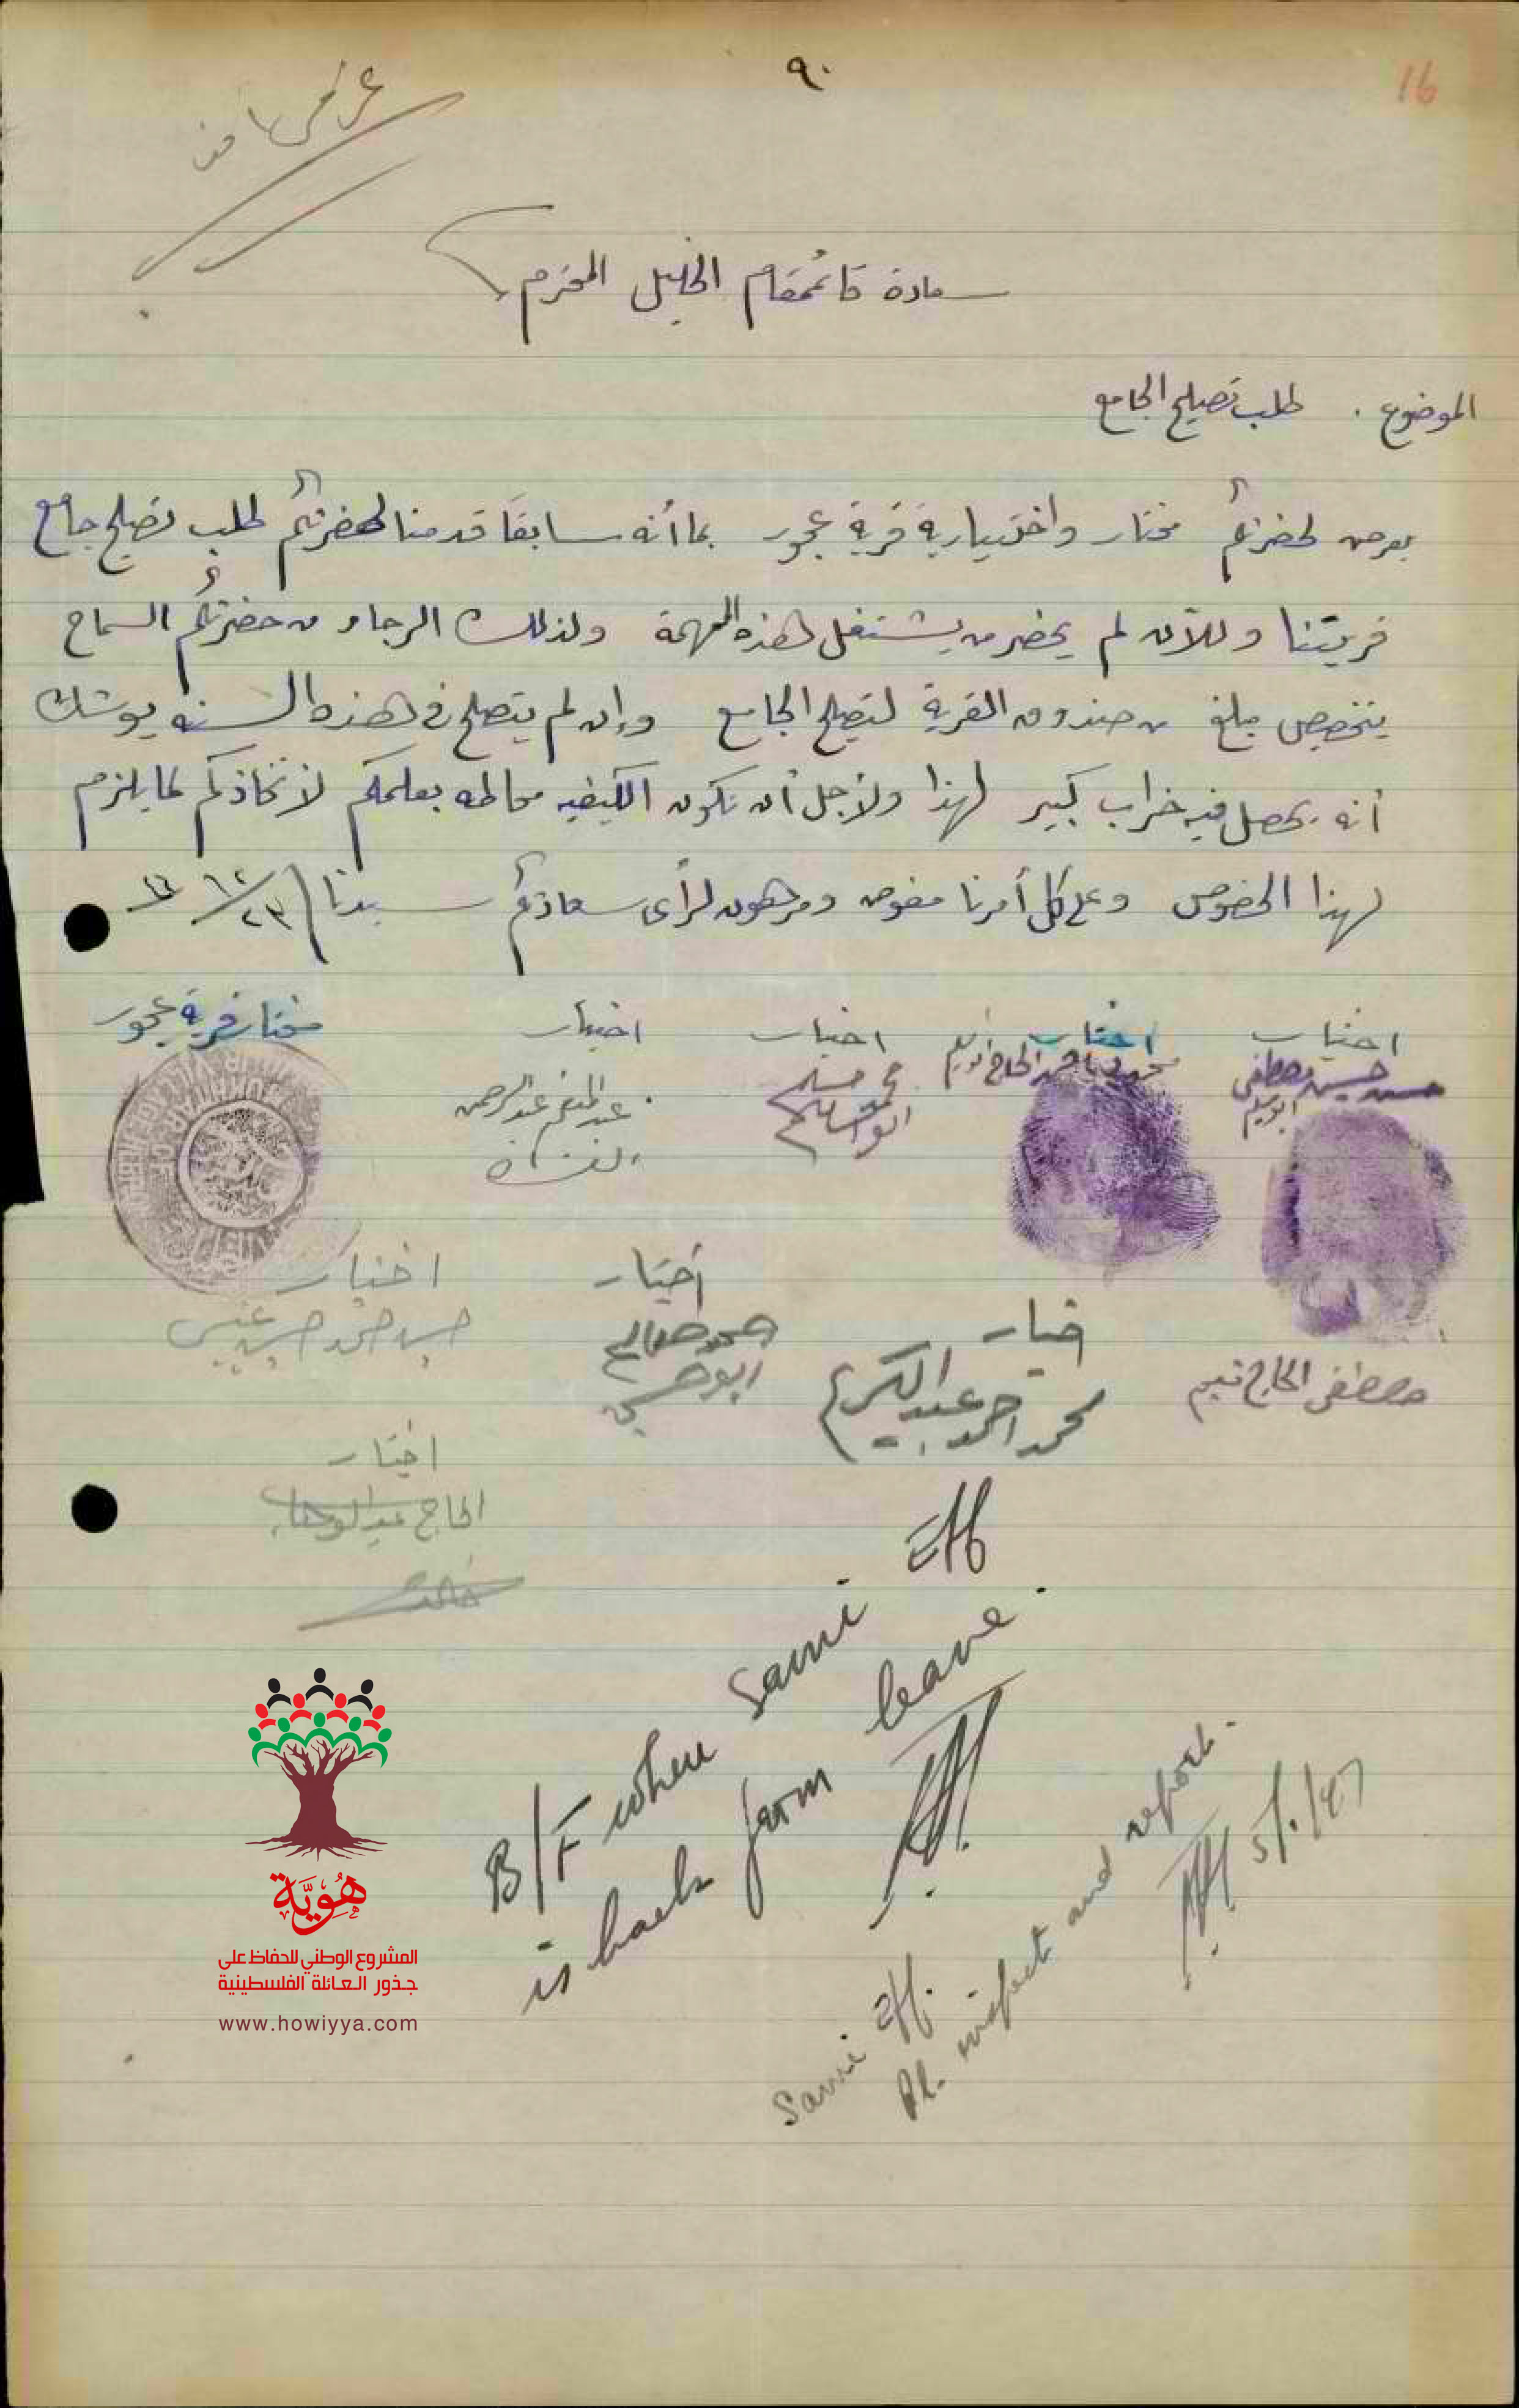 16
٩٠
سعادة قائمقام الخليل المحترم
الموضوع . طلب تصليح الجامع
يعرض لحضرتكم مختار واختيارية قرية عجور بما أنه سابقاً قدمنا لحضرتكم طلب تصليح جامع
قريتنا وللآن لم يحضر من يشتغل هذه المهمة ولذلك الرجاء من حضرتكم السماح
بتخصيص مبلغ من صندوق القرية لتصليح الجامع وإن لم يتصلح في هذه السنه يوشك
أنه يحصل فيه خراب كبير لهذا ولأجل أن تكون الكيفيه محاطه بعلمكم لاتخاذكم لما يلزم
لهذا الخصوص وعلى كل أمرنا مفوض ومرهون لرأى سعادتكم سيدنا ٢٣/١٢/٤٦
اختيار اختيار اختيار اختيار مختار قرية عجور
حسن حسين مصطفى
ابو سليم
محمد مسلم
ابو سالم
عبد المنعم عبد الرحمن
مصطفى الحاج نعيم
اختيار
محمد احمد عبد الكريم
اختيار
محمد صالح
ابو حسين
اختيار
اختيار
الحاج عبد الوهاب
B/F when Sami Eff
is back from leave.
Sami Eff.
Pl. inspect and report.
5/1/47
هُوِيَّة
المشروع الوطني للحفاظ على
جذور العائلة الفلسطينية
www.howiyya.com